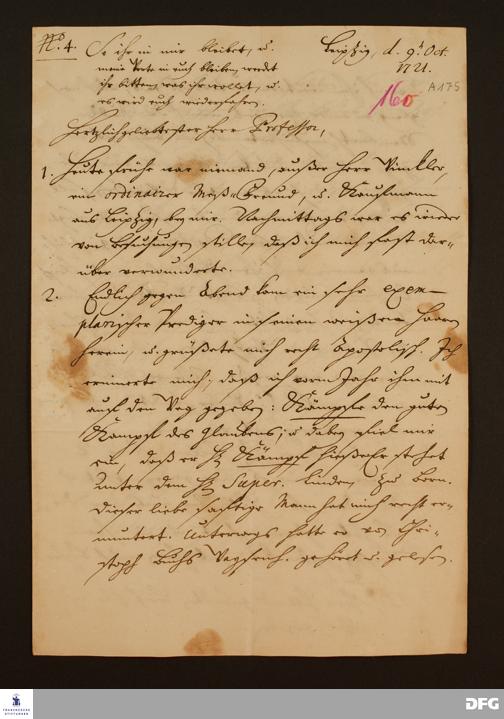 No. 4. So ihr in mir bleibet, u.
meine Worte in euch bleiben, werdet
ihr bitten, was ihr wollet, u.
es wird euch wiederfahren.
Leipzig, d. 9t Oct.
1721.
160
A175
Hertzlichgeliebtester Herr Professor,
1. Heute frühe war niemand, außer Herr Winkler,
ein ordinairer Meß-Freund, u. Kauffmann
aus Leipzig, bey mir. Nachmittags war es wieder
von Besuchungen stille, daß ich mich fast dar-
über verwunderte.
2. Endlich gegen Abend kam ein sehr exem-
plarischer Prediger in seinen weißen Haaren
herein, u. grüßete mich recht Apostolisch. Ich
erinnerte mich, daß ich vorm Jahr ihm mit
auf den Weg gegeben: Kämpffe den guten
Kampff des Glaubens; u. dabey fiel mir
ein, daß er H. Kämpff heiße, er stehet
unter dem H. Super. Linden, zu Born.
Dieser liebe 70jährige Mann hat mich recht er-
muntert. Unterwegs hatte er von Chri-
stoph Buchs gehöret u. gelesen.
FRANCKESCHE
STIFTUNGEN
DFG